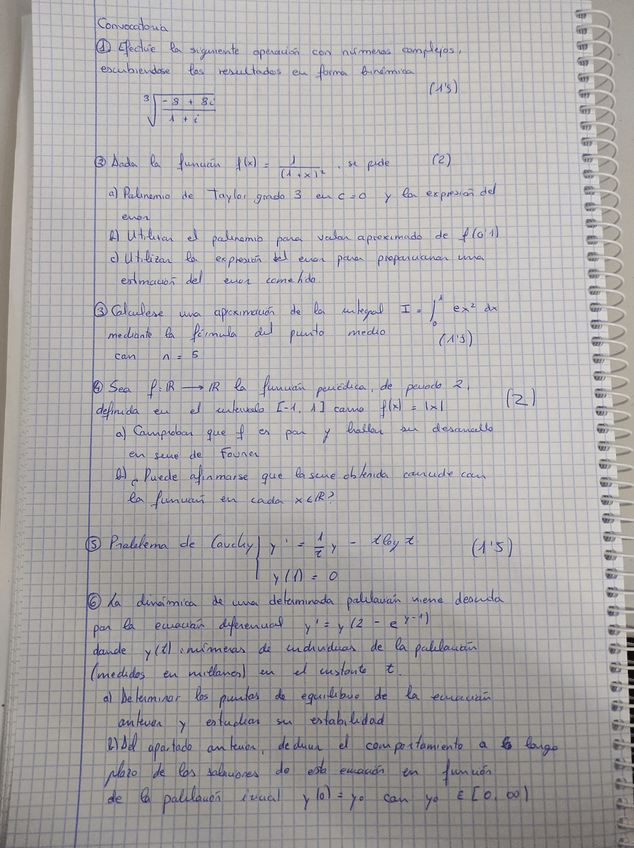 Convocatoria
① Efectúe la siguiente operación con números complejos,
escribiendose los resultados en forma binómica
(1'5)
∛((-8 + 8i)/(1 + i))
② Dada la función f(x) = 1/(1+x)², se pide (2)
a) Polinomio de Taylor grado 3 en c=0 y la expresión del
error
b) Utilizar el polinomio para valor aproximado de f(0'1)
c) Utilizar la expresión del error para proporcionar una
estimación del error cometido.
③ Calculese una aproximación de la integral I = ∫₀¹ ex² dx
mediante la fórmula del punto medio (1'5)
con n = 5
④ Sea f: ℝ → ℝ la función periódica, de periodo 2,
definida en el intervalo [-1, 1] como f(x) = |x| (2)
a) Comprobar que f es par y hallar su desarrollo
en serie de Fourier
b) ¿Puede afirmarse que la serie obtenida coincide con
la función en cada x ∈ ℝ?
⑤ Problema de Cauchy { y' = 1/t y - t log t (1'5)
y(1) = 0
⑥ La dinámica de una determinada población viene descrita
por la ecuación diferencial y' = y(2 - e^(y-1))
donde y(t): números de individuos de la población
(medidos en millones) en el instante t.
a) Determinar los puntos de equilibrio de la ecuación
anterior y estudiar su estabilidad
b) Del apartado anterior, deducir el comportamiento a largo
plazo de las soluciones de esta ecuación en función
de la población inicial y(0) = y₀ con y₀ ∈ [0, ∞)